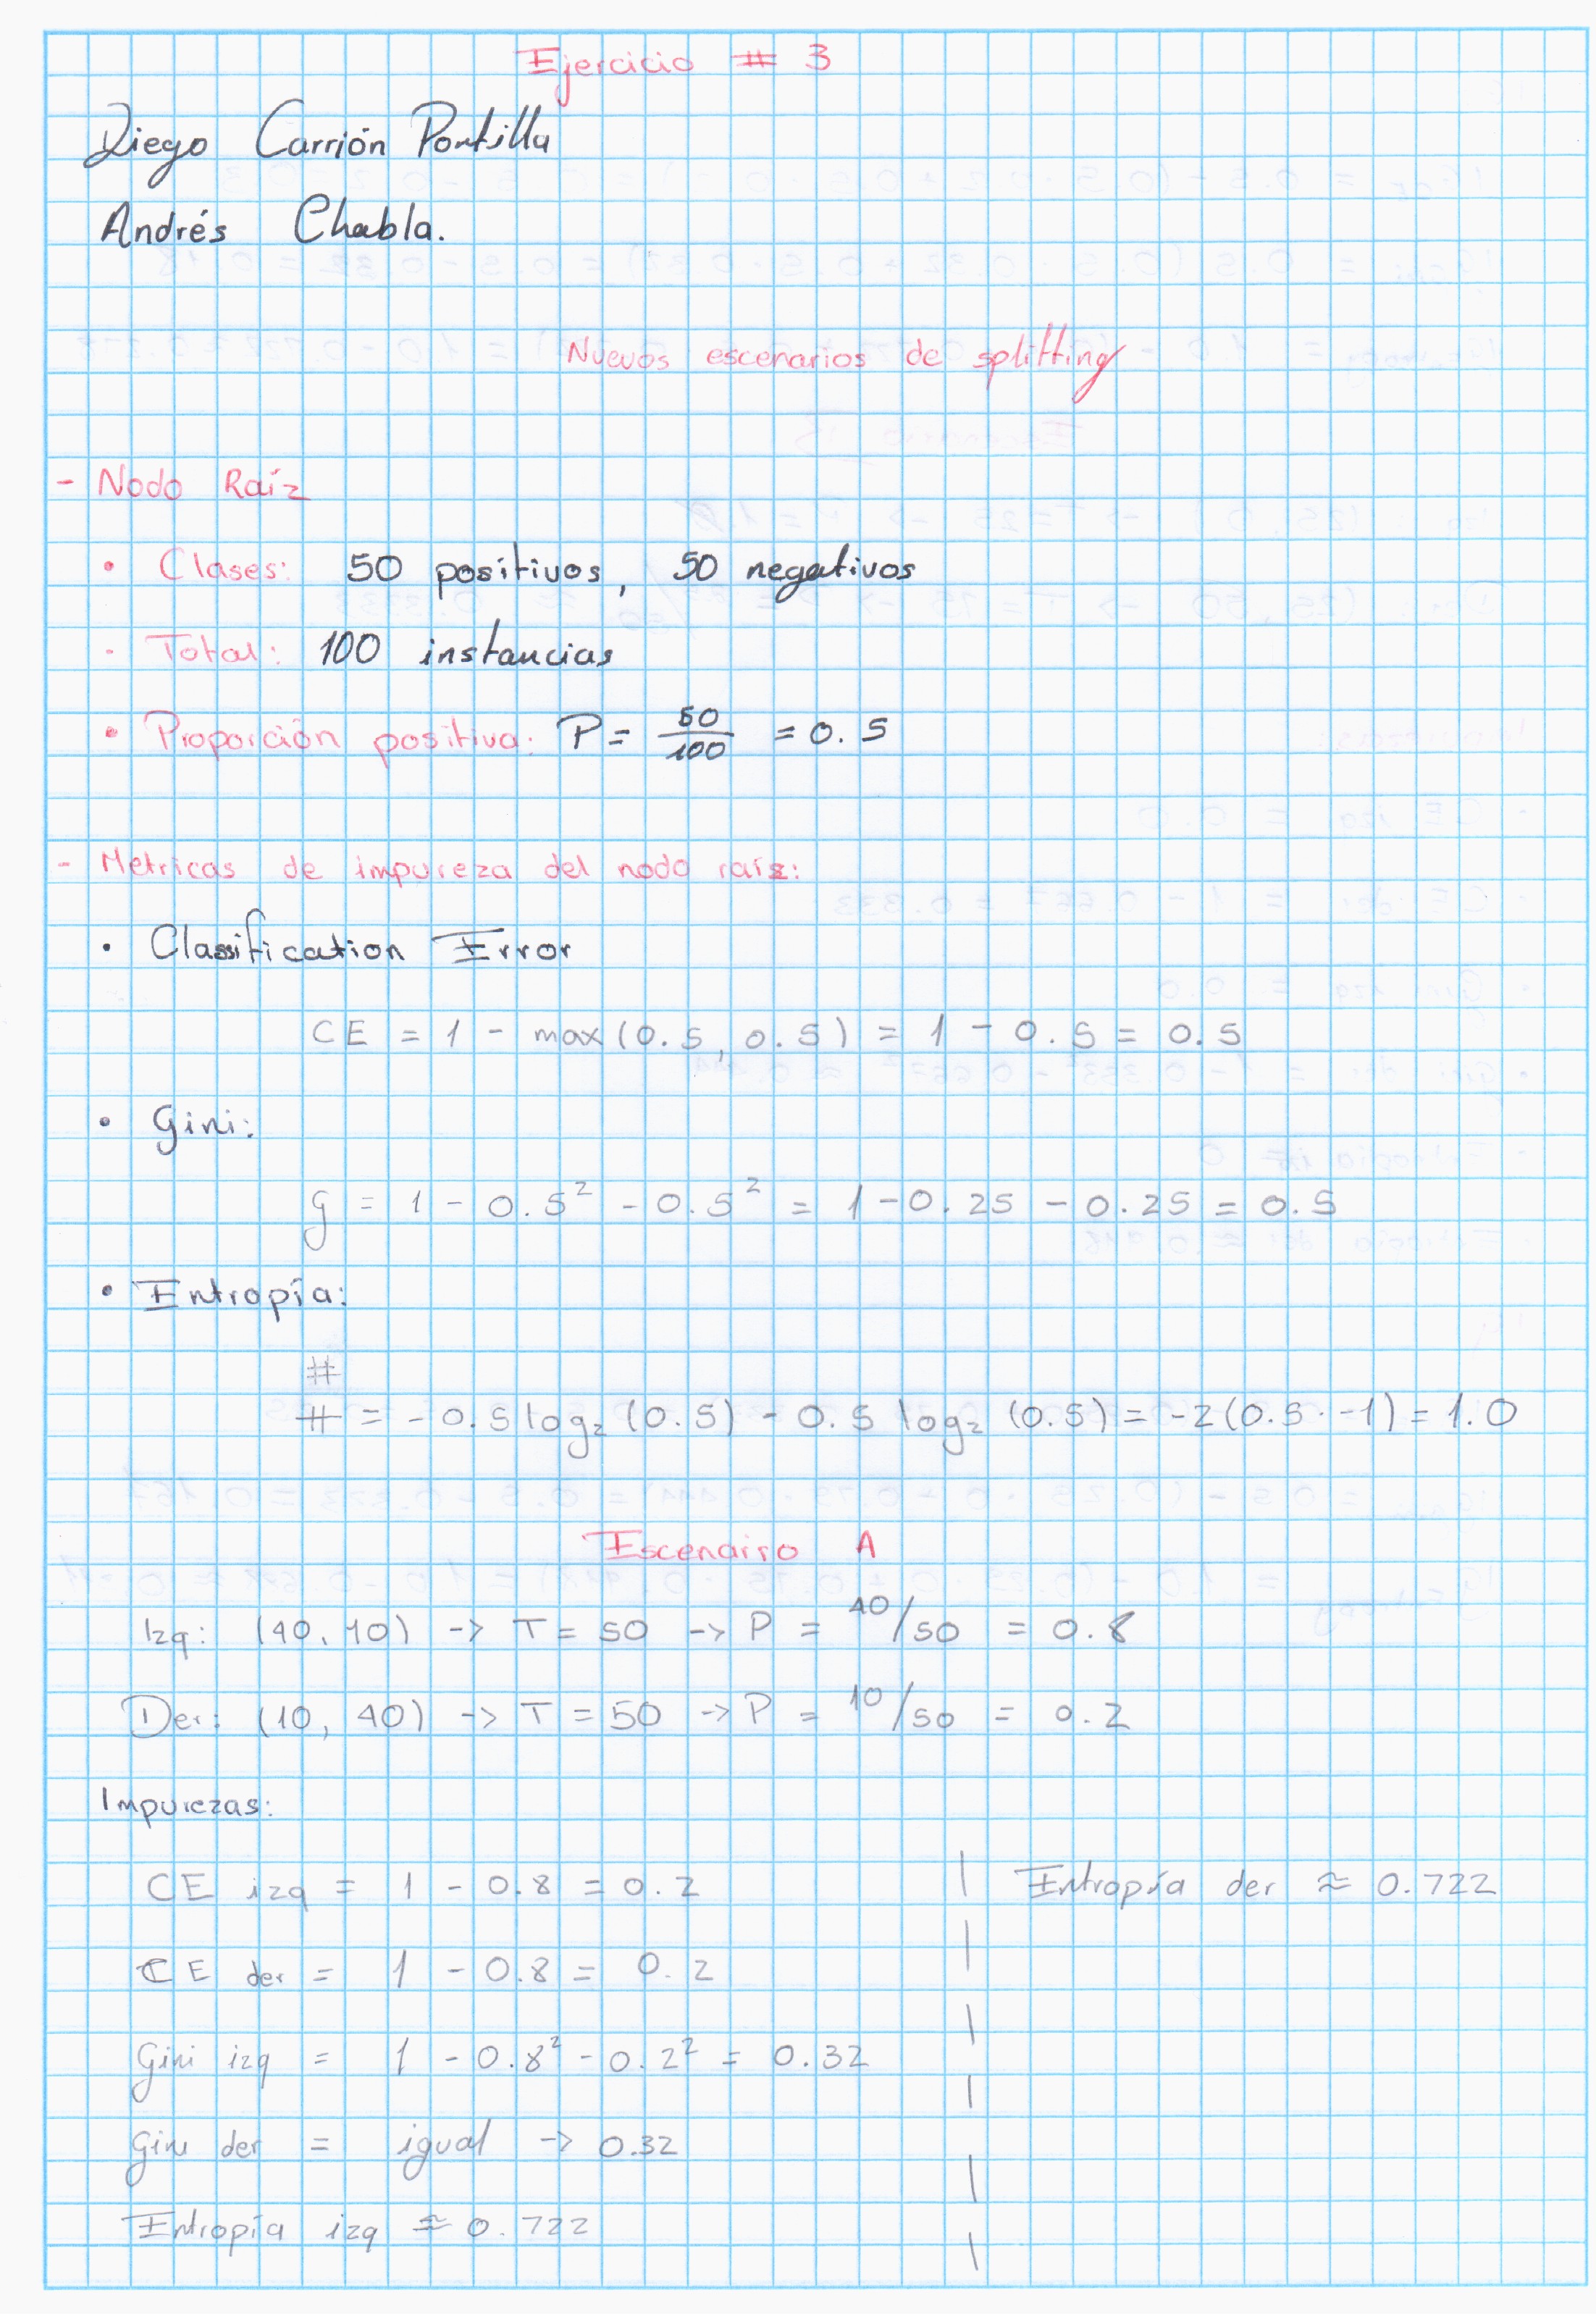 Ejercicio # 3
Diego Carrión Portilla
Andrés Chabla.
Nuevos escenarios de splitting
- Nodo Raíz
• Clases: 50 positivos, 50 negativos
• Total: 100 instancias
• Proporción positiva: P = 50/100 = 0.5
- Métricas de impureza del nodo raíz:
• Classification Error
CE = 1 - max(0.5, 0.5) = 1 - 0.5 = 0.5
• Gini:
g = 1 - 0.5² - 0.5² = 1 - 0.25 - 0.25 = 0.5
• Entropía:
#
H = - 0.5 log₂ (0.5) - 0.5 log₂ (0.5) = -2(0.5 · -1) = 1.0
Escenairro A
Izq: (40, 10) -> T = 50 -> P = 40/50 = 0.8
Der: (10, 40) -> T = 50 -> P = 10/50 = 0.2
Impurezas:
CE izq = 1 - 0.8 = 0.2
CE der = 1 - 0.8 = 0.2
Gini izq = 1 - 0.8² - 0.2² = 0.32
Gini der = igual -> 0.32
Entropía izq ≈ 0.722
Entropía der ≈ 0.722